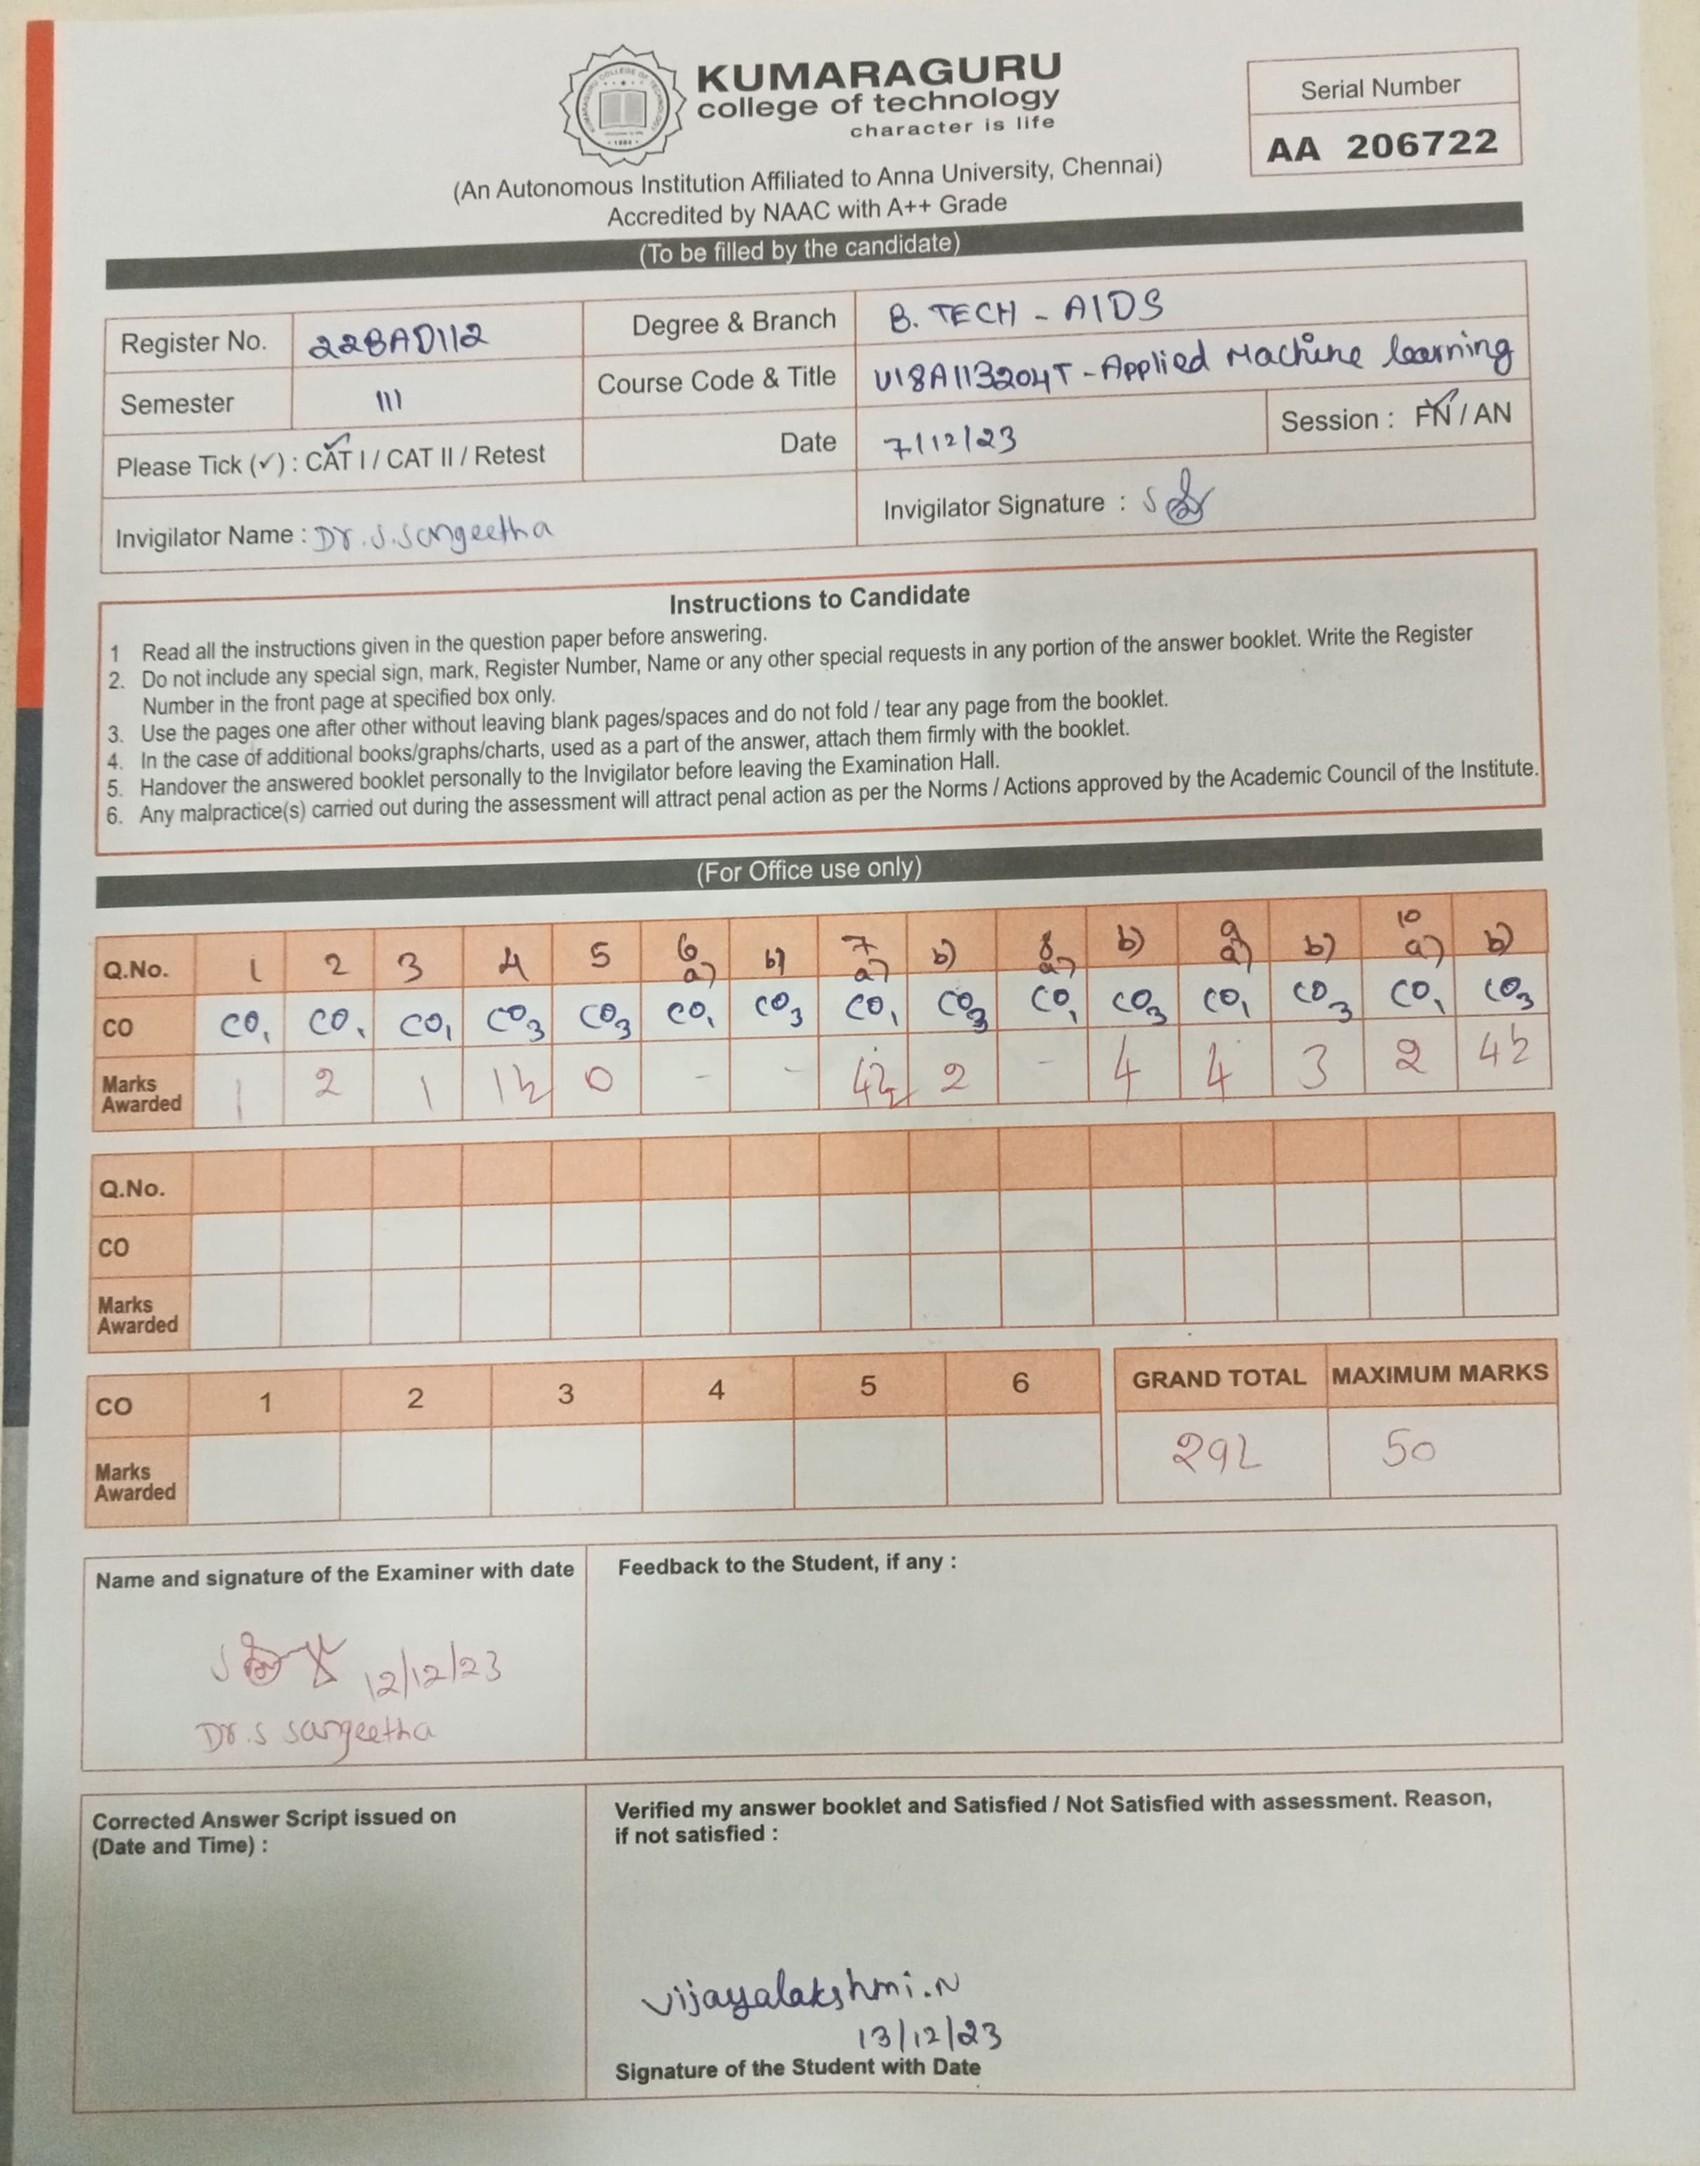 KUMARAGURU
college of technology
character is life
(An Autonomous Institution Affiliated to Anna University, Chennai)
Accredited by NAAC with A++ Grade
Serial Number
AA 206722
(To be filled by the candidate)
Register No. 22BAD112
Degree & Branch B. TECH - AIDS
Semester III
Course Code & Title U18AI13204T - Applied Machine learning
Please Tick (✓) : CAT I / CAT II / Retest
Date 7/12/23
Session : FN / AN
Invigilator Name : Dr. S. Sangeetha
Invigilator Signature :
Instructions to Candidate
1 Read all the instructions given in the question paper before answering.
2. Do not include any special sign, mark, Register Number, Name or any other special requests in any portion of the answer booklet. Write the Register
Number in the front page at specified box only.
3. Use the pages one after other without leaving blank pages/spaces and do not fold / tear any page from the booklet.
4. In the case of additional books/graphs/charts, used as a part of the answer, attach them firmly with the booklet.
5. Handover the answered booklet personally to the Invigilator before leaving the Examination Hall.
6. Any malpractice(s) carried out during the assessment will attract penal action as per the Norms / Actions approved by the Academic Council of the Institute.
(For Office use only)
Q.No. 1 2 3 4 5 6 a) b) 7 a) b) 8 a) b) 9 a) b) 10 a) b)
CO CO1 CO1 CO1 CO3 CO3 CO1 CO3 CO1 CO3 CO1 CO3 CO1 CO3 CO1 CO3
Marks Awarded 1 2 1 1½ 0 - - 4½ 2 - 4 4 3 2 4½
Q.No.
CO
Marks
Awarded
CO 1 2 3 4 5 6
Marks
Awarded
GRAND TOTAL MAXIMUM MARKS
50
Name and signature of the Examiner with date
12/12/23
Dr. S Sangeetha
Feedback to the Student, if any :
Corrected Answer Script issued on
(Date and Time) :
Verified my answer booklet and Satisfied / Not Satisfied with assessment. Reason,
if not satisfied :
Vijayalakshmi.N
13/12/23
Signature of the Student with Date